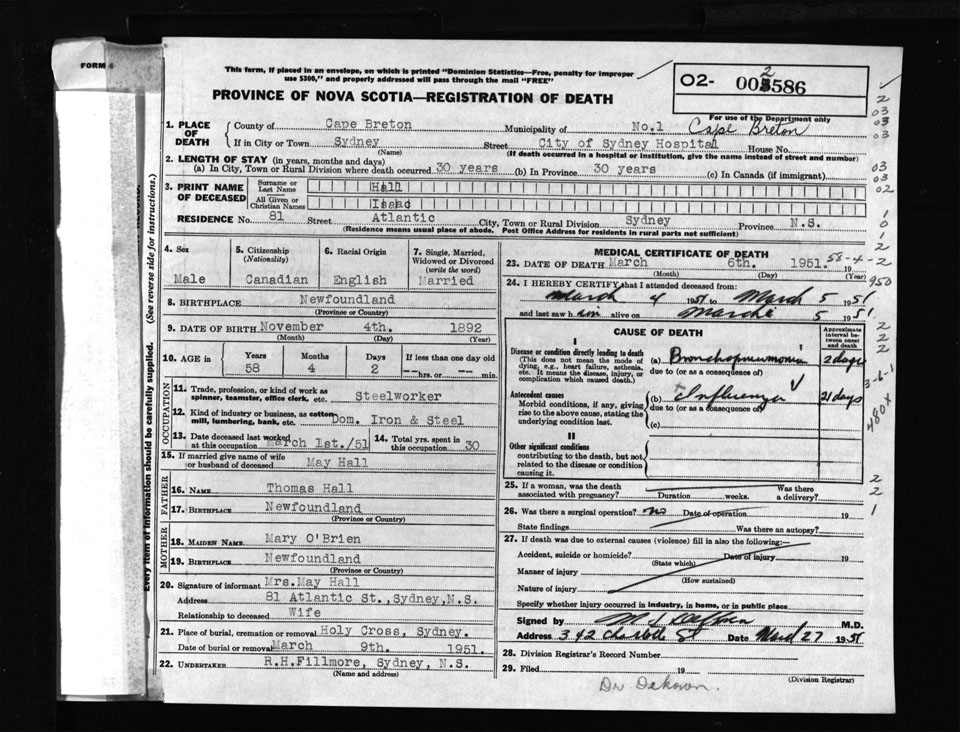 FORM
This form, if placed in an envelope, on which is printed "Dominion Statistics—Free, penalty for improper
use $300," and properly addressed will pass through the mail "FREE"
PROVINCE OF NOVA SCOTIA—REGISTRATION OF DEATH
O2- 002586
For use of the Department only
Every item of information should be carefully supplied. (See reverse side for instructions.)
1. PLACE OF DEATH
County of Cape Breton Municipality of No.1 Cape Breton
If in City or Town Sydney Street City of Sydney Hospital House No.
(Name) (If death occurred in a hospital or institution, give the name instead of street and number)
2. LENGTH OF STAY (in years, months and days)
(a) In City, Town or Rural Division where death occurred 30 years (b) In Province 30 years (c) In Canada (if immigrant)
3. PRINT NAME OF DECEASED
Surname or Last Name Hall
All Given or Christian Names Isaac
RESIDENCE No. 81 Street Atlantic City, Town or Rural Division Sydney Province N.S.
(Residence means usual place of abode. Post Office Address for residents in rural parts not sufficient)
4. Sex Male
5. Citizenship (Nationality) Canadian
6. Racial Origin English
7. Single, Married, Widowed or Divorced (write the word) Married
8. BIRTHPLACE Newfoundland
(Province or Country)
9. DATE OF BIRTH November 4th. 1892
(Month) (Day) (Year)
10. AGE in Years Months Days If less than one day old
58 4 2 -- hrs. or -- min.
OCCUPATION
11. Trade, profession, or kind of work as
spinner, teamster, office clerk, etc. Steelworker
12. Kind of industry or business, as cotton
mill, lumbering, bank, etc. Dom. Iron & Steel
13. Date deceased last worked
at this occupation March 1st./51
14. Total yrs. spent in
this occupation 30
15. If married give name of wife
or husband of deceased May Hall
FATHER
16. NAME Thomas Hall
17. BIRTHPLACE Newfoundland
(Province or Country)
MOTHER
18. MAIDEN NAME Mary O'Brien
19. BIRTHPLACE Newfoundland
(Province or Country)
20. Signature of informant Mrs.May Hall
Address 81 Atlantic St.,Sydney,N.S.
Relationship to deceased Wife
21. Place of burial, cremation or removal Holy Cross, Sydney.
Date of burial or removal March 9th. 1951.
22. UNDERTAKER R.H.Fillmore, Sydney, N.S.
(Name and address)
MEDICAL CERTIFICATE OF DEATH
23. DATE OF DEATH March 6th. 1951. 58-4-2
19
(Month) (Day) (Year)
24. I HEREBY CERTIFY that I attended deceased from:
March 4 1951 to March 5 1951
and last saw him alive on March 5 1951
CAUSE OF DEATH
Approximate interval between onset and death
I
Disease or condition directly leading to death
(This does not mean the mode of
dying, e.g., heart failure, asthenia,
etc. It means the disease, injury, or
complication which caused death.)
(a) Bronchopneumonia 2 days
due to (or as a consequence of)
Antecedent causes
Morbid conditions, if any, giving
rise to the above cause, stating the
underlying condition last.
(b) Influenza 21 days
due to (or as a consequence of)
(c)
II
Other significant conditions
contributing to the death, but not
related to the disease or condition
causing it.
25. If a woman, was the death
associated with pregnancy? Duration weeks. Was there
a delivery?
26. Was there a surgical operation? no Date of operation 19
State findings Was there an autopsy?
27. If death was due to external causes (violence) fill in also the following:—
Accident, suicide or homicide? Date of injury 19
(State which)
Manner of injury
(How sustained)
Nature of injury
Specify whether injury occurred in industry, in home, or in public place
Signed by M.D.
Address 342 Charlotte St Date March 27 1951
28. Division Registrar's Record Number
29. Filed 19
(Division Registrar)
2
03
03
03
03
03
02
1
0
1
2
950
2
2
2
3-6-1
480x
2
2
1